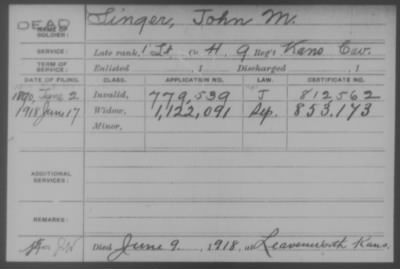 DEAD
NAME OF SOLDIER: Singer, John M.
SERVICE: Late rank, 1" Lt. Co H, 9 Reg't Kans Cav.
TERM OF SERVICE: Enlisted , 1 Discharged , 1
DATE OF FILING. CLASS. APPLICATION NO. LAW. CERTIFICATE NO.
1890, June 2 Invalid, 779,539 J 812562
1918 June 17 Widow, 1,122,091 Sep. 853,173
Minor,
ADDITIONAL SERVICES:
REMARKS:
Died June 9, 1918, at Leavenworth Kans.